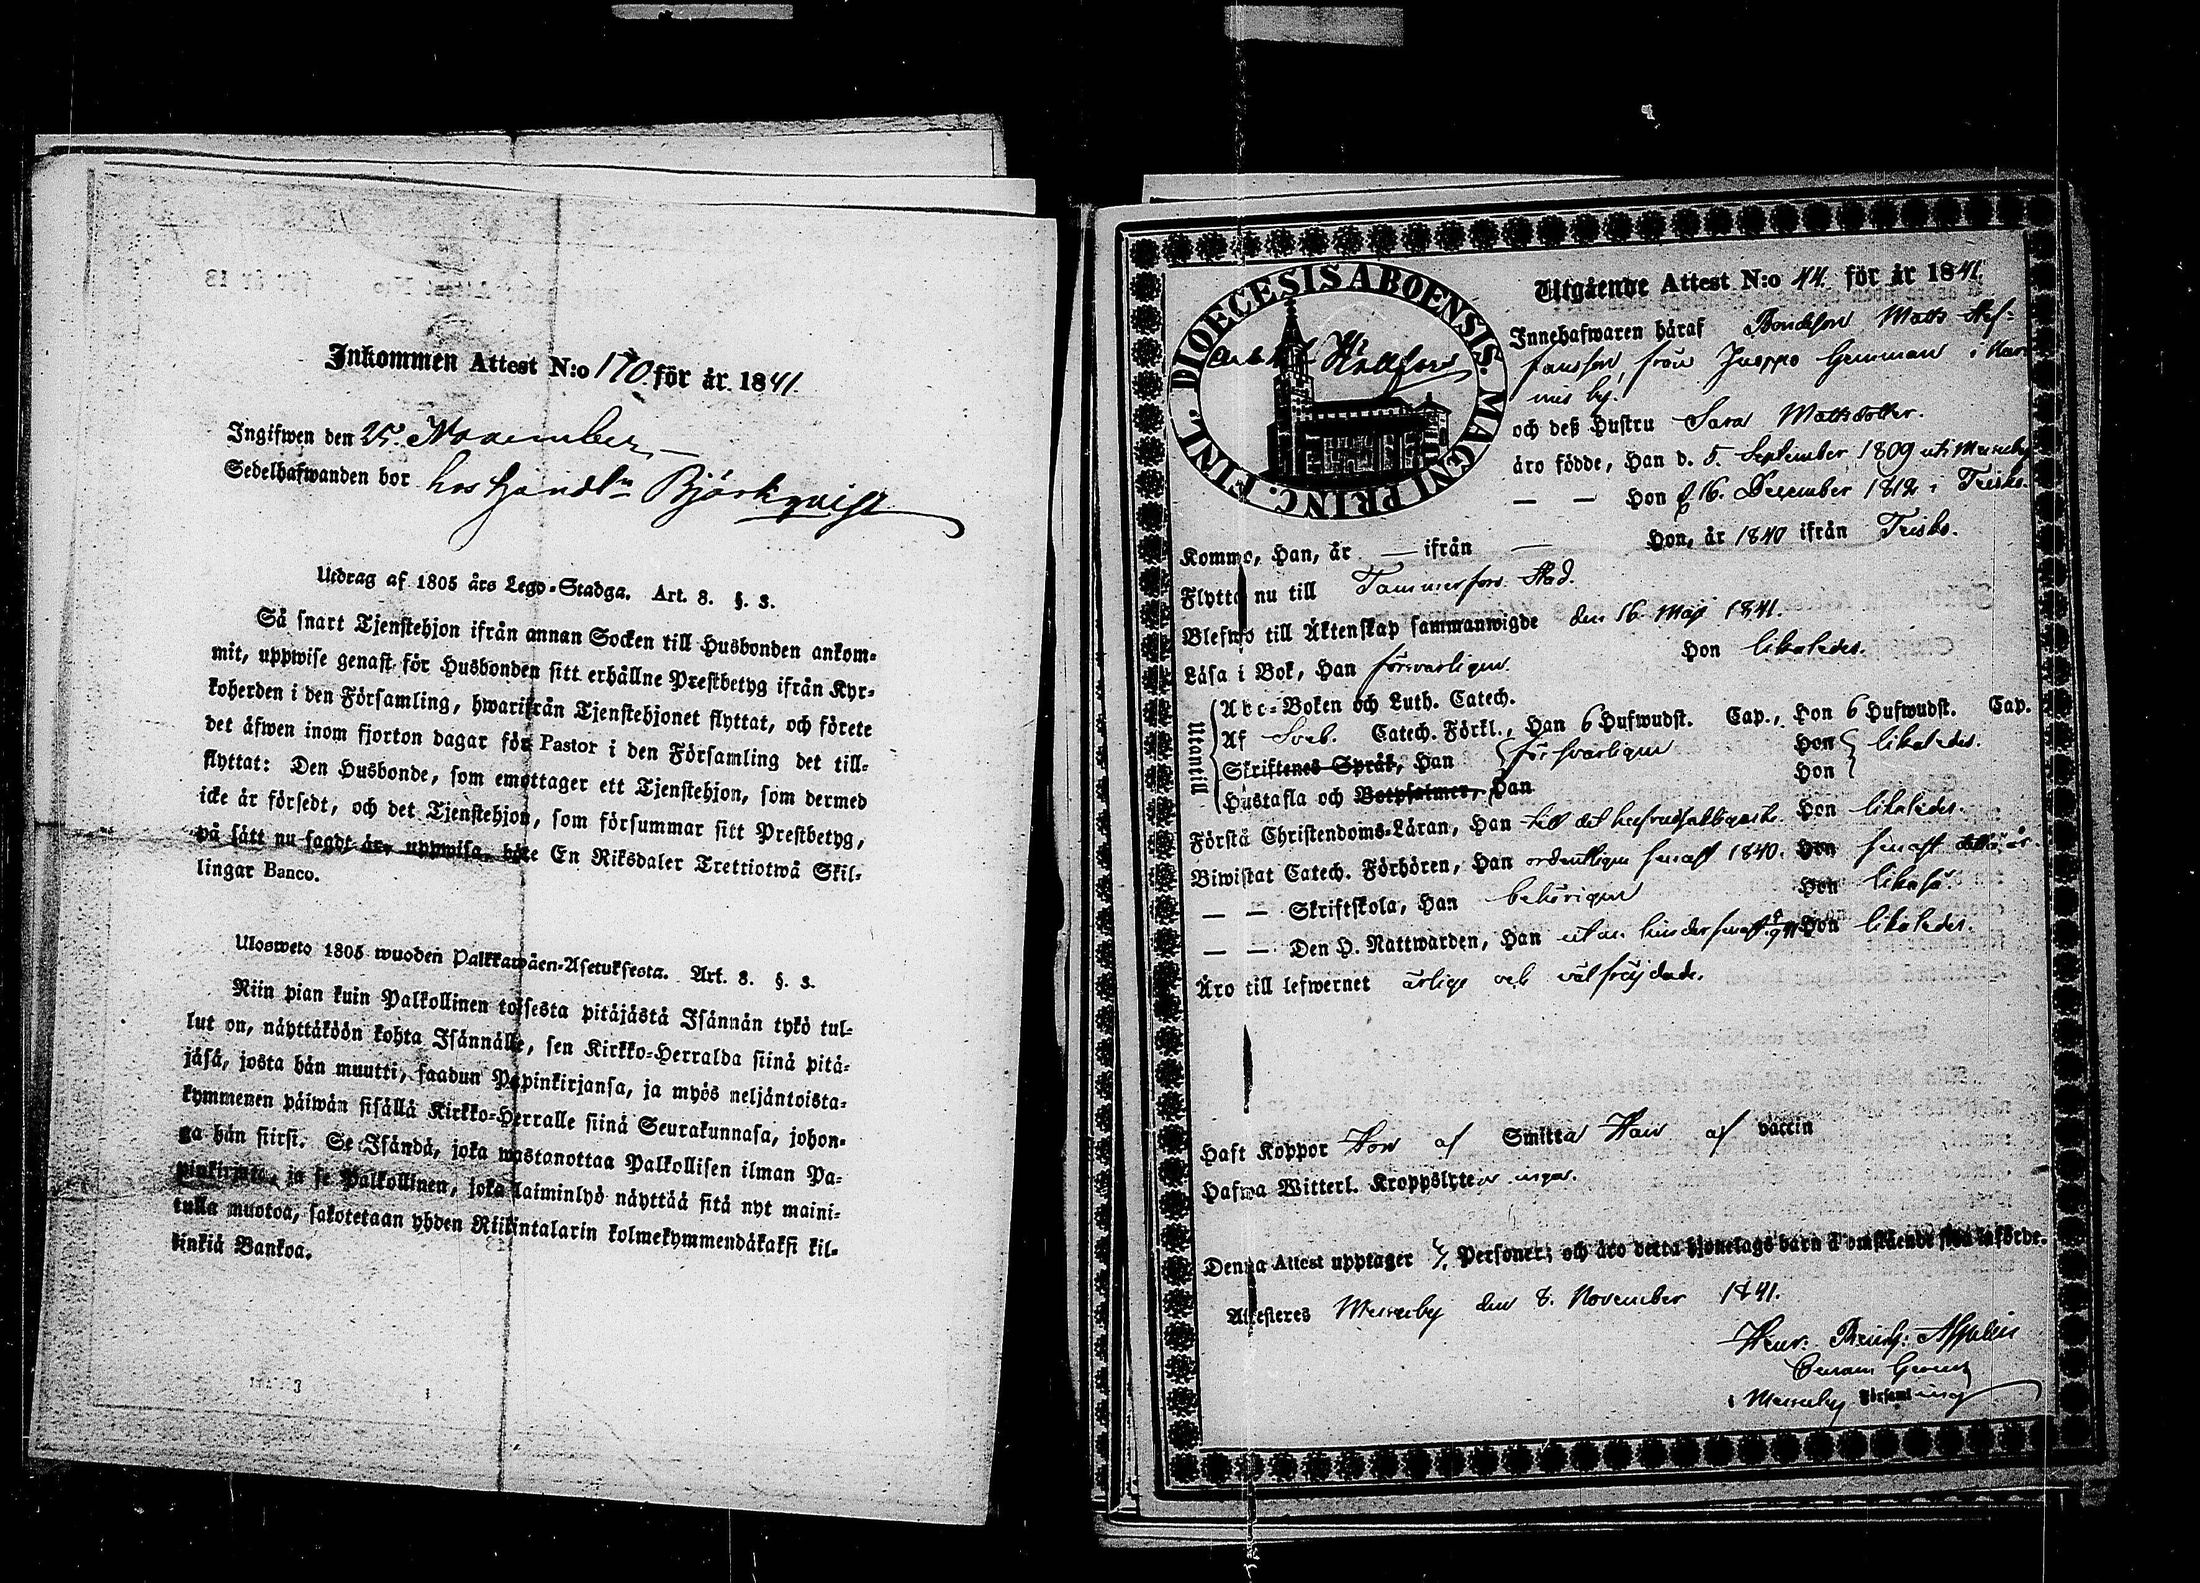 Inkommen Attest N:o 170 för år 1841
Ingifwen den 25. November
Sedelhafwanden bor hos Handl:n Björkqvist
Utdrag af 1805 års Lego-Stadga. Art. 8. §. 3.
Så snart Tjenstehjon ifrån annan Socken till Husbonden ankom-
mit, uppwise genast för Husbonden sitt erhållne Prestbetyg ifrån Kyr-
koherden i den Församling, hwarifrån Tjenstehjonet flyttat, och förete
det äfwen inom fjorton dagar för Pastor i den Församling det till-
flyttat: Den Husbonde, som emottager ett Tjenstehjon, som dermed
icke är försedt, och det Tjenstehjon, som försummar sitt Prestbetyg,
på sätt nu sagdt är, uppwisa, böte En Riksdaler Trettiotwå Skil-
lingar Banco.
Ulosweto 1805 wuoden Palkkawäen-Asetuksesta. Art. 8. §. 3.
Niin pian kuin Palkollinen toisesta pitäjästä Isännän tykö tul-
lut on, näyttäköön kohta Isännälle, sen Kirkko-Herralda siinä pitä-
jäsä, josta hän muutti, saadun Papinkirjansa, ja myös neljäntoista-
kymmenen päiwän sisällä Kirkko-Herralle siinä Seurakunnasa, johon-
ga hän siirsi. Se Isändä, joka wastanottaa Palkollisen ilman Pa-
pinkirjata, ja se Palkollinen, joka laiminlyö näyttää sitä nyt maini-
tulla muotoa, sakotetaan yhden Riikintalarin kolmekymmendäkaksi kil-
linkiä Bankoa.
DIOECESIS ABOENSIS. MAGNI PRINC. FINL.
Utgående Attest N:o 44. för år 1841.
Innehafwaren häraf Bondeson Matts Stef-
fansson, från Juoppo Gumman i
by.
och deß Hustru Sara Mattsdotter.
äro födde, Han d. 5. September 1809 uti
— — Hon d. 16. December 1812 i
Kommo, Han, år — ifrån — Hon, år 1840 ifrån
Flytta nu till Tammerfors Stad.
Blefwo till Äktenskap sammanwigde den 16 Maj 1841.
Läsa i Bok, Han försvarligen Hon likaledes.
Utantill
Abc-Boken och Luth. Catech.
Af Sveb. Catech. Förkl., Han 6 Hufwudst. Cap., Hon 6 Hufwudst. Cap.
Skriftenes Språk, Han försvarligen Hon likaledes.
Hustafla och Botpsalmer, Han Hon
Förstå Christendoms-Läran, Han till det hufvudsakligaste. Hon likaledes.
Biwistat Catech. Förhören, Han ordentligen senast 1840. Hon senast detta år.
— — Skriftskola, Han behörigen Hon likaså.
— — Den H. Nattwarden, Han utan hinder senast Hon likaledes.
Äro till lefwernet ärlige och välfrejdade.
Haft Koppor Hon af Smitta Han af vaccin
Hafwa Witterl. Kroppslyte inga.
Denna Attest upptager Personer; och äro detta hjonelags barn å omstående sida införde.
Attesteres den 8. November 1841.
i Församling